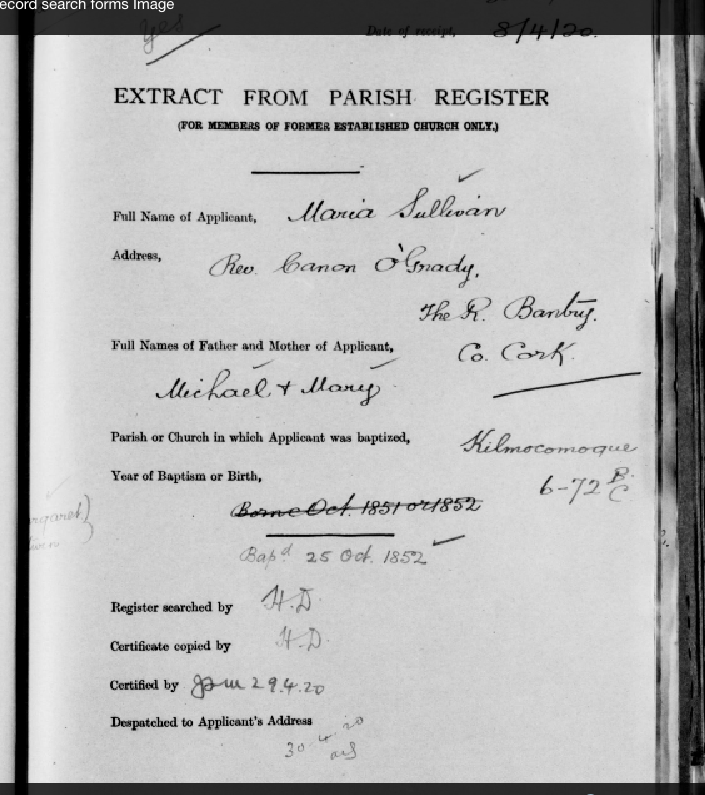 ecord search forms Image
yes
Date of receipt, 8/4/20.
EXTRACT FROM PARISH REGISTER
(FOR MEMBERS OF FORMER ESTABLISHED CHURCH ONLY.)
Full Name of Applicant, Maria Sullivan
Address, Rev. Canon O'Grady,
The R. Bantry.
Full Names of Father and Mother of Applicant, Co. Cork.
Michael + Mary
Parish or Church in which Applicant was baptized, Kilmocomoque
Year of Baptism or Birth, 6-72 B.C
Borne Oct. 1851 or 1852
Bapd 25 Oct. 1852
Register searched by H.D.
Certificate copied by H.D.
Certified by 29.4.20
Despatched to Applicant's Address
30